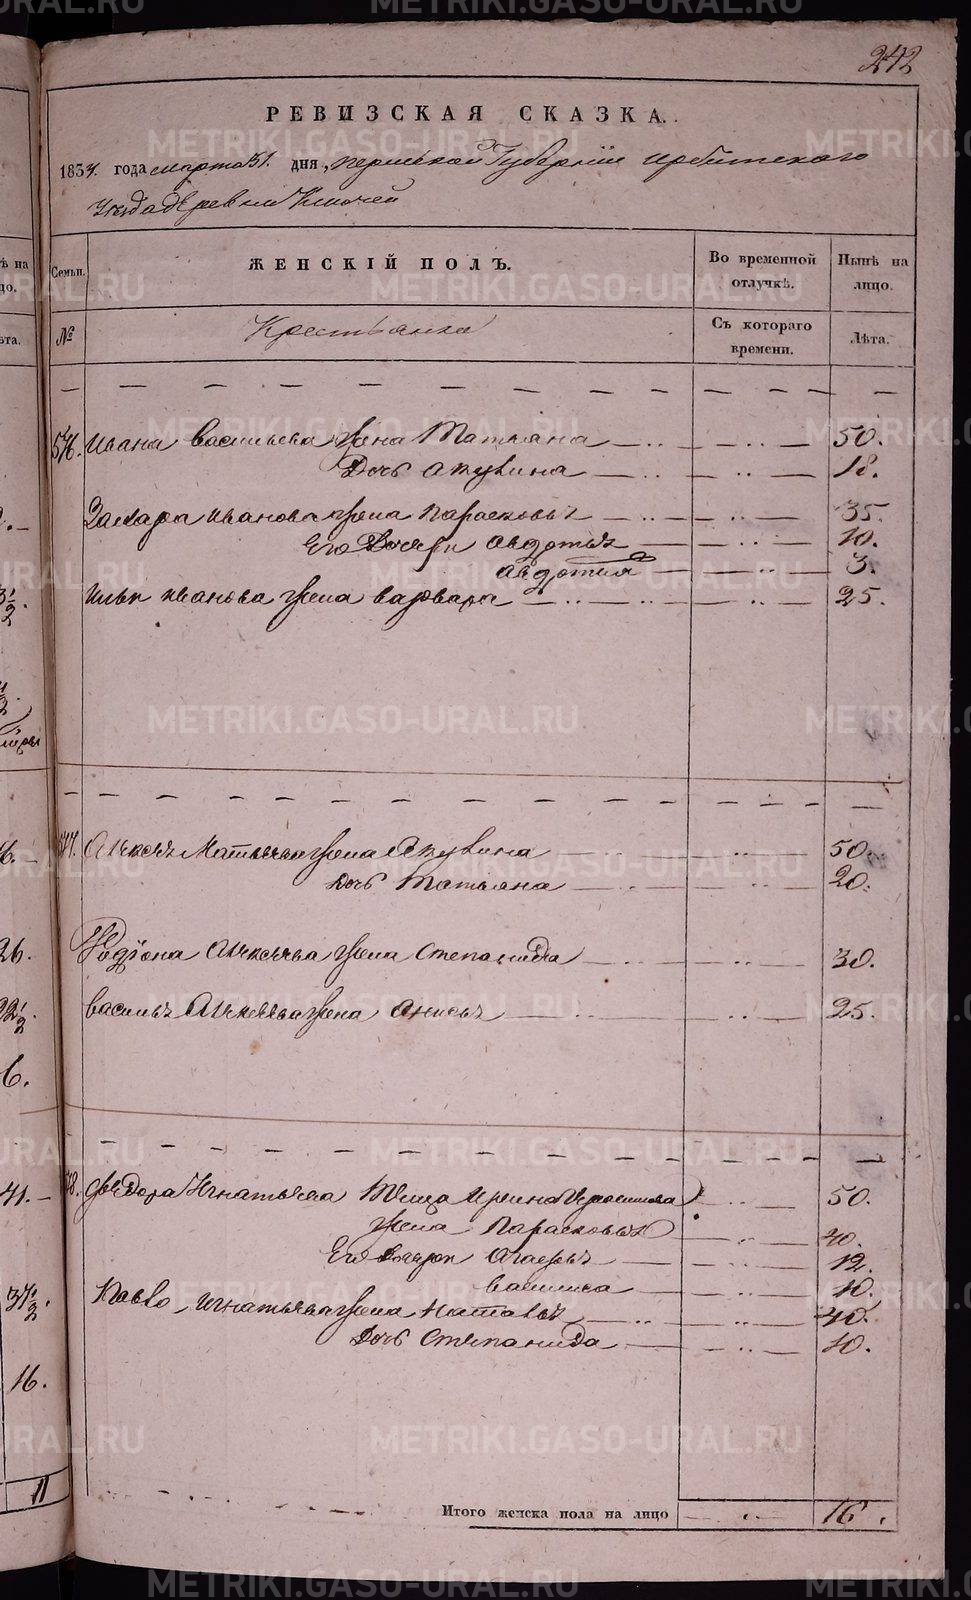 242
РЕВИЗСКАЯ СКАЗКА.
1834 года марта 31. дня, пермской Губернiи ирбитского
Уезда деревни Ключей
Семьи. ЖЕНСКІЙ ПОЛЪ. Во временной отлучкѣ. Нынѣ на лицо.
№ Крестьянка Съ котораго времени. Лѣта.
546. Ивана васильева жена Татьяна 50.
Дочь акулина 18.
Захара иванова жена парасковья 35.
Его Дочери авдотья 10.
авдотия 3.
Ильи иванова жена варвара 25.
Алексея Матвеева жена Акулина 50.
Дочь Татьяна 20.
Родiона Алексеева жена степанида 30.
василья Алексеева жена анисья 25.
Федора Игнатьева Теща Ирина 50.
жена парасковья 40.
Его Дочери агафья 12.
василиса 10.
Павла игнатьева жена Наталья 40.
Дочь степанида 10.
Итого женска пола на лицо 16.
3½.
6.
26.
22½.
6.
41.
37½.
16.
11
METRIKI.GASO-URAL.RU